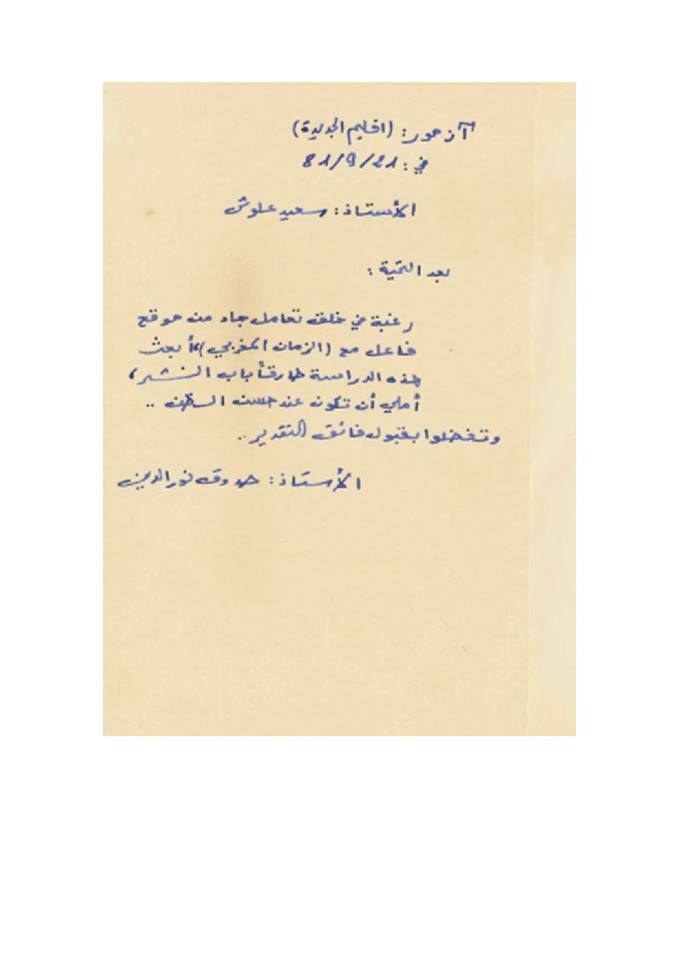 آزمور: (اقليم الجديدة)
في: 21/9/81
الأستاذ: سعيد علوش
بعد التحية:
رغبة في خلق تعامل جاد من موقع
فاعل مع (الزمان المغربي)، أبعث
هذه الدراسة طارقاً باب النشر،
أملي أن تكون عند حسن الظن ..
وتفضلوا بقبول فائق التقدير..
الأستاذ: صدوق نور الدين